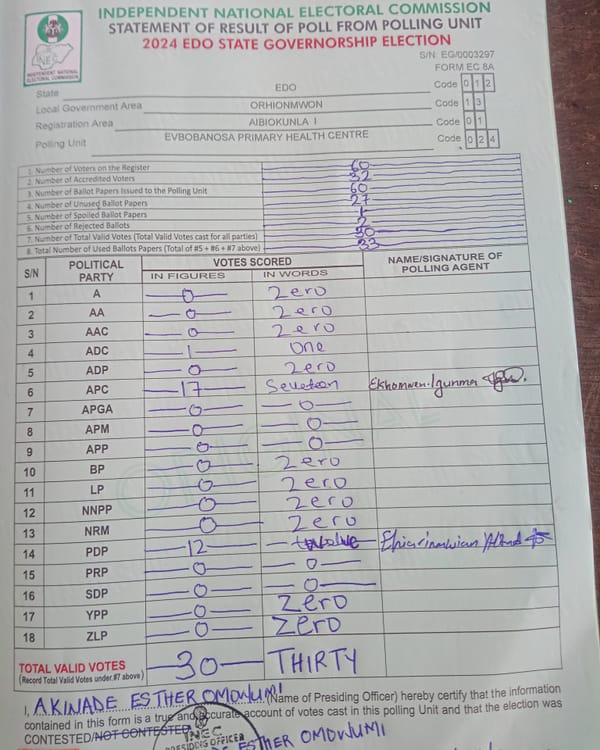 INDEPENDENT NATIONAL ELECTORAL COMMISSION
STATEMENT OF RESULT OF POLL FROM POLLING UNIT
2024 EDO STATE GOVERNORSHIP ELECTION
INEC
INDEPENDENT NATIONAL
ELECTORAL COMMISSION
S/N: EG/0003297
FORM EC 8A
State EDO Code 0 1 2
Local Government Area ORHIONMWON Code 1 3
Registration Area AIBIOKUNLA I Code 0 1
Polling Unit EVBOBANOSA PRIMARY HEALTH CENTRE Code 0 2 4
1. Number of Voters on the Register 60
2. Number of Accredited Voters 32
3. Number of Ballot Papers Issued to the Polling Unit 60
4. Number of Unused Ballot Papers 27
5. Number of Spoiled Ballot Papers
6. Number of Rejected Ballots
7. Number of Total Valid Votes (Total Valid Votes cast for all parties) 30
8. Total Number of Used Ballots Papers (Total of #5 + #6 + #7 above) 33
S/N POLITICAL PARTY VOTES SCORED NAME/SIGNATURE OF POLLING AGENT
IN FIGURES IN WORDS
1 A 0 Zero
2 AA 0 Zero
3 AAC 0 Zero
4 ADC 1 One
5 ADP 0 Zero
6 APC 17
7 APGA 0 0
8 APM 0 0
9 APP 0 0
10 BP 0 Zero
11 LP 0 Zero
12 NNPP 0 Zero
13 NRM 0 Zero
14 PDP 12 twolve
15 PRP 0 0
16 SDP 0 0
17 YPP 0 Zero
18 ZLP 0 Zero
TOTAL VALID VOTES 30 THIRTY
(Record Total Valid Votes under #7 above)
I, AKINADE ESTHER OMOWUMI (Name of Presiding Officer) hereby certify that the information
contained in this form is a true and accurate account of votes cast in this polling Unit and that the election was
CONTESTED/NOT CONTESTED
INEC
PRESIDING OFFICER
ESTHER OMOWUMI